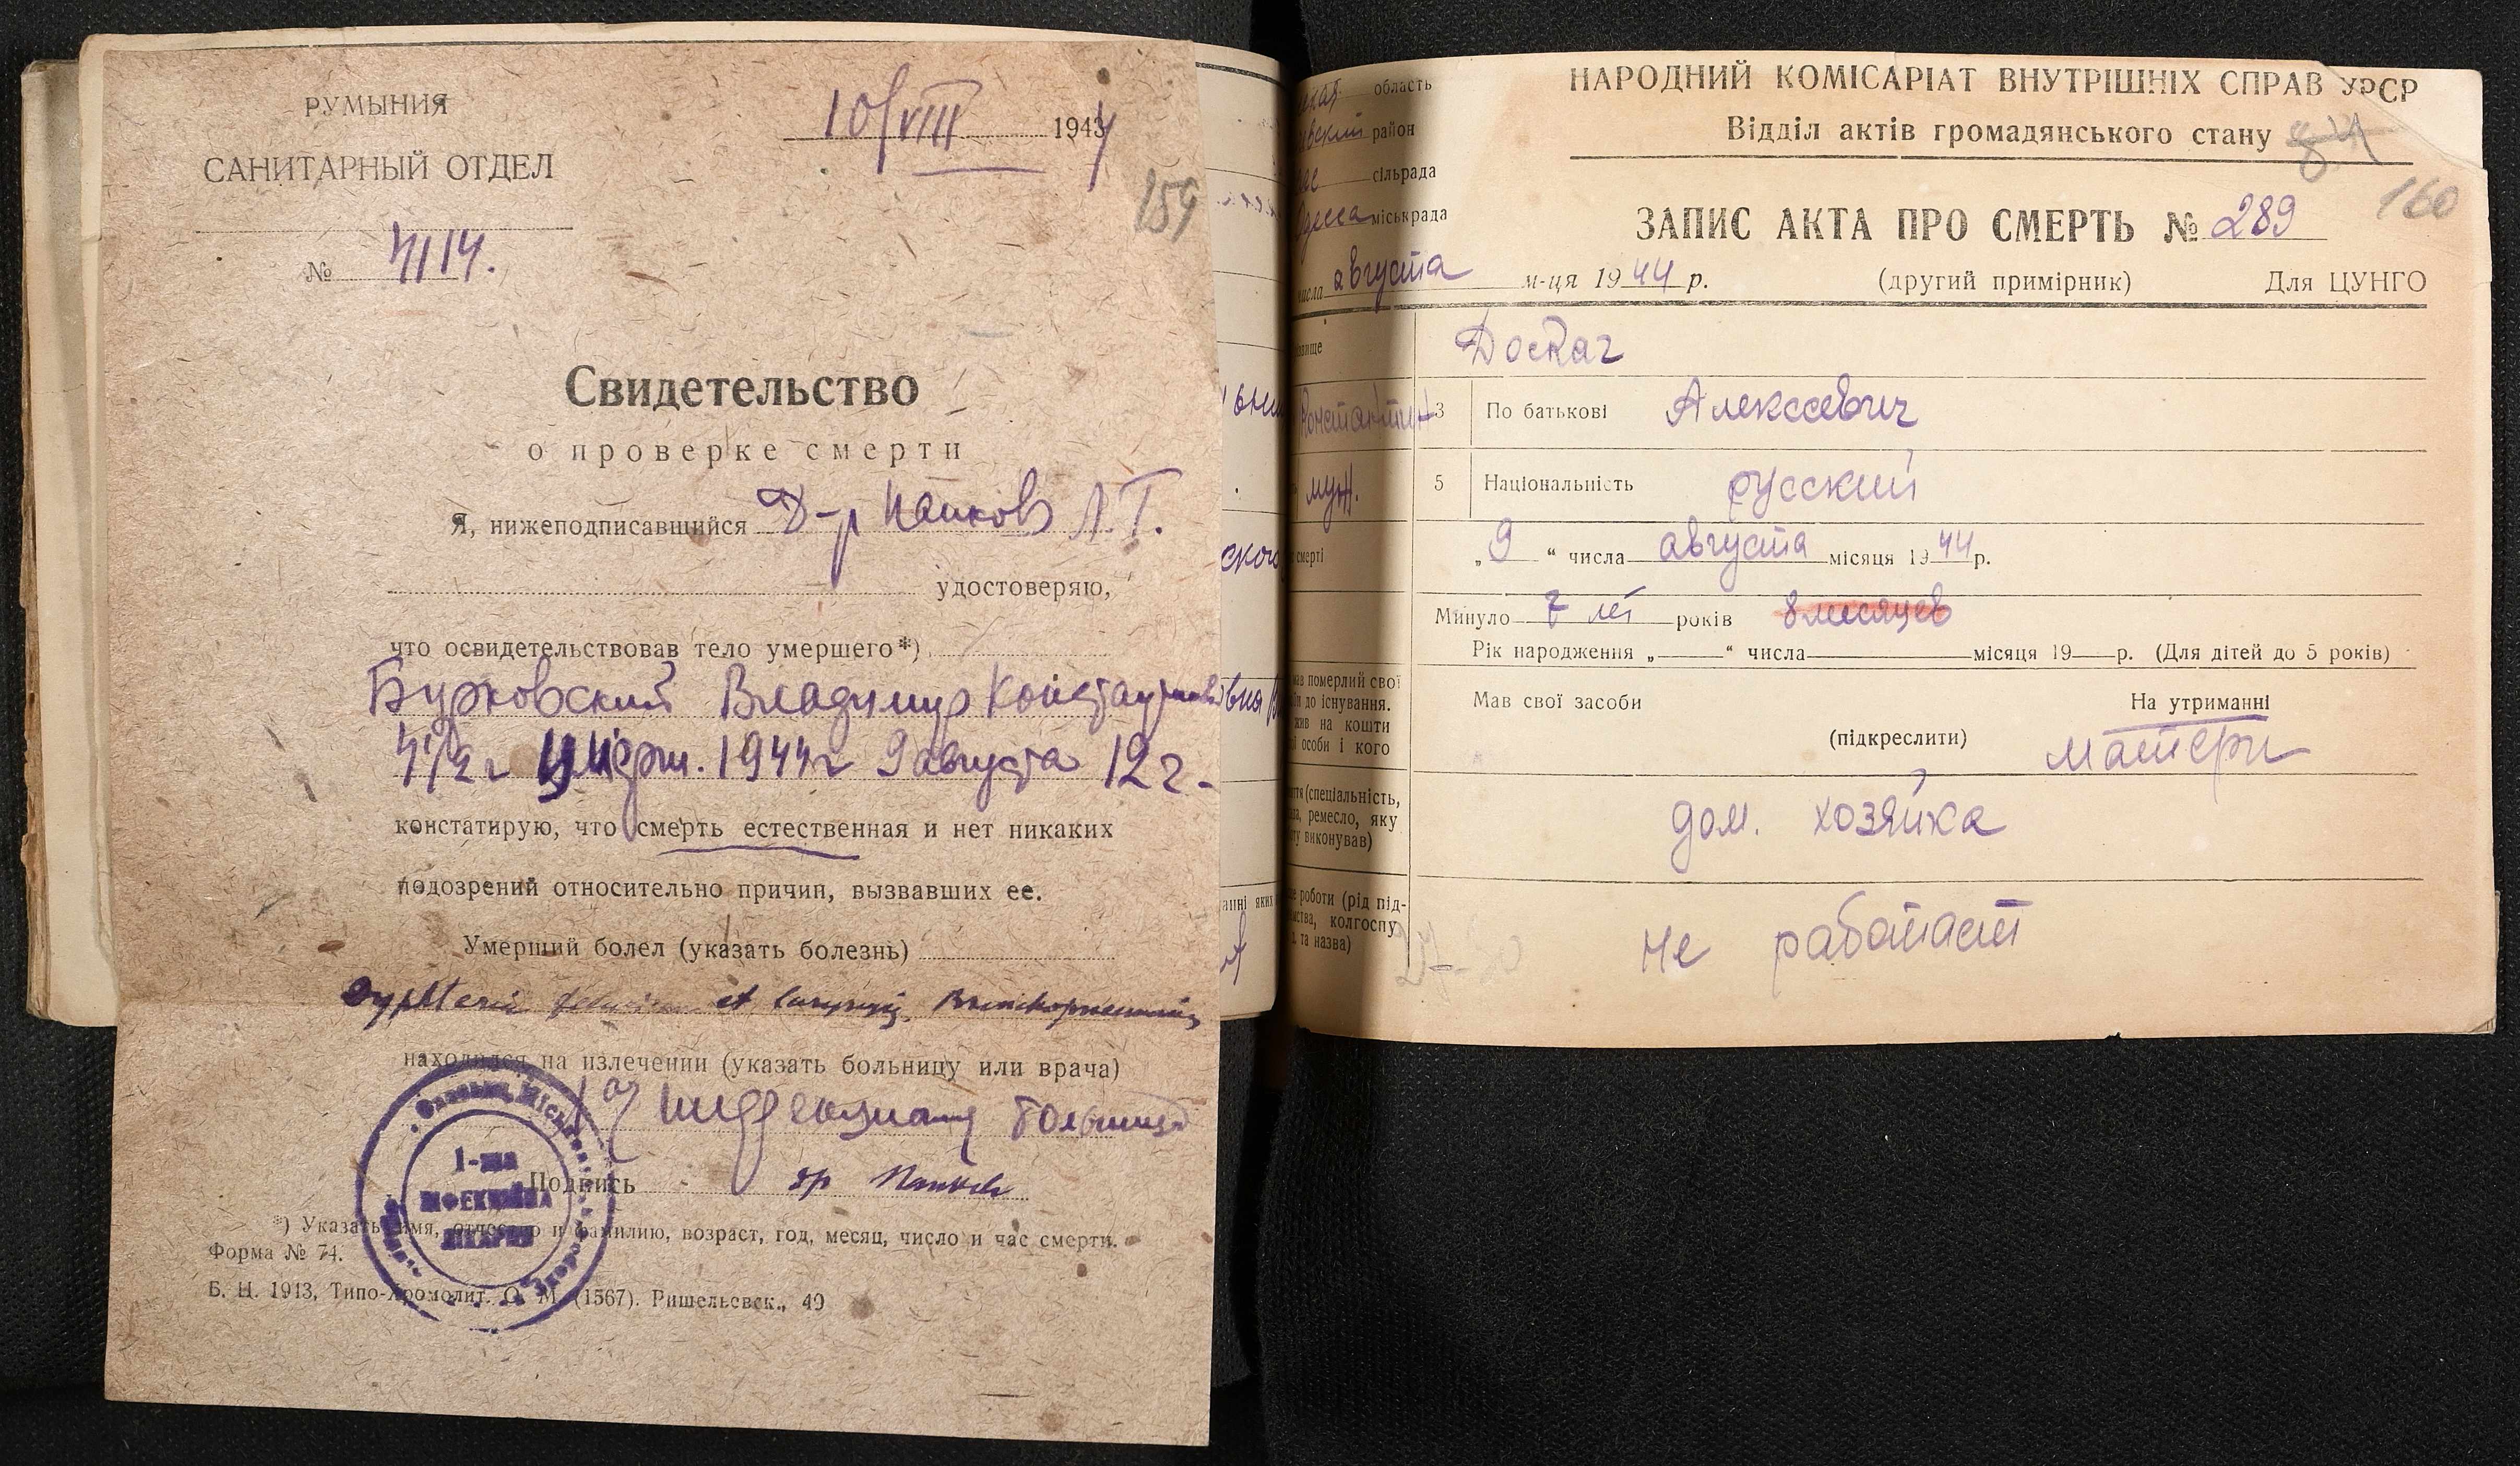 РУМЫНИЯ
САНИТАРНЫЙ ОТДЕЛ
10/VIII 1944
159
№ 4114.
Свидетельство
о проверке смерти
Я, нижеподписавшийся Д-р Панков Л.Т.
удостоверяю,
что освидетельствовав тело умершего*)
Бурковский Владимир
умерш. 1944 г 9 августа 12 г.
констатирую, что смерть естественная и нет никаких
подозрений относительно причин, вызвавших ее.
Умерший болел (указать болезнь)
et laryngis, Bronchopneumonia
находился на излечении (указать больницу или врача)
больница
Подпись др Панков
1-ша
ІНФЕКЦІЙНА
ЛІКАРНЯ
*) Указать имя, отчество и фамилию, возраст, год, месяц, число и час смерти.
Форма № 74.
Б. Ц. 1943, Типо-Хромолит. О. М. (1567). Ришельевск., 49
область
район
сільрада
Одесса міськрада
числа августа м-ця 1944 р.
НАРОДНИЙ КОМІСАРІАТ ВНУТРІШНІХ СПРАВ УРСР
Відділ актів громадянського стану
160
ЗАПИС АКТА ПРО СМЕРТЬ № 289
(другий примірник) Для ЦУНГО
Доскач
Константин 3 По батькові Алексеевич
муж. 5 Національність русский
смерті „9“ числа августа місяця 1944 р.
Минуло 7 лет років 8 месяцев
Рік народження „ “ числа місяця 19 р. (Для дітей до 5 років)
мав померлий свої
до існування.
жив на кошти
особи і кого
Мав свої засоби На утриманні
(підкреслити) матери
(спеціальність,
ремесло, яку
виконував)
дом. хозяйка
роботи (рід під-
колгоспу
та назва)
не работает